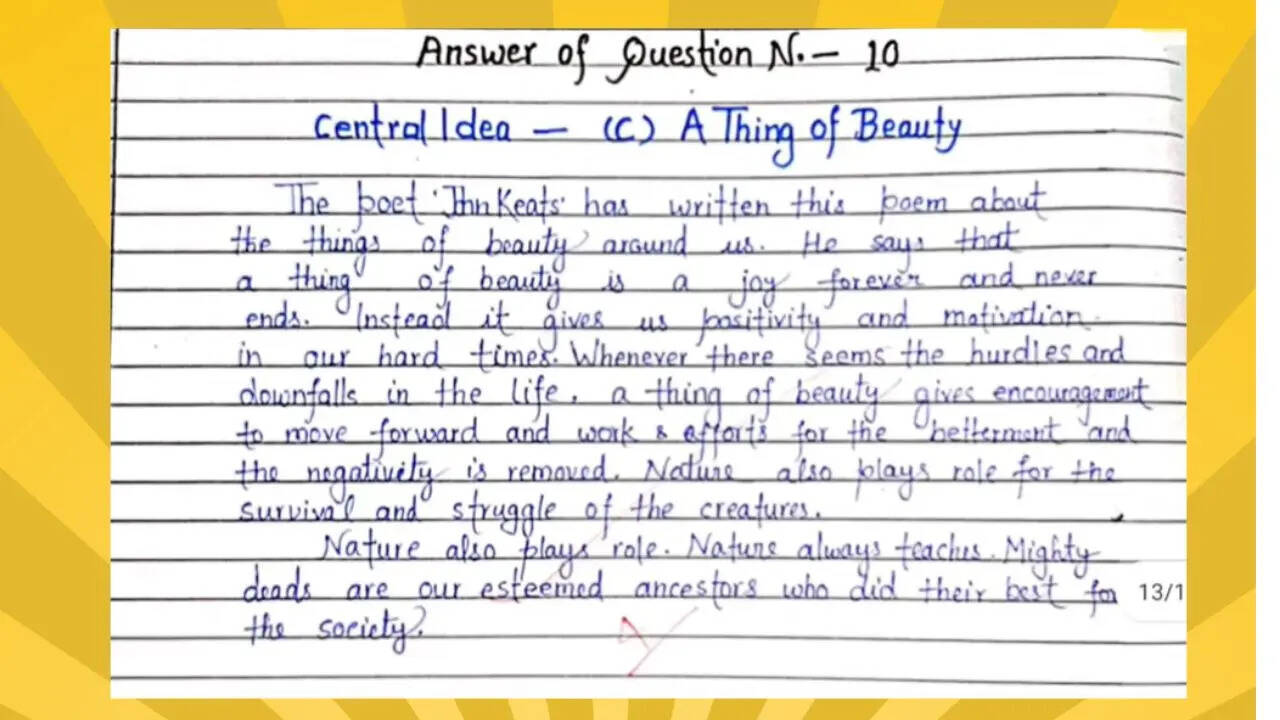 Answer of Question N.- 10
Central Idea - (C) A Thing of Beauty
The poet 'John Keats' has written this poem about
the things of beauty around us. He says that
a thing of beauty is a joy forever and never
ends. Instead it gives us positivity and motivation
in our hard times. Whenever there seems the hurdles and
downfalls in the life, a thing of beauty gives encouragement
to move forward and work & efforts for the betterment and
the negativity is removed. Nature also plays role for the
survival and struggle of the creatures.
Nature also plays role. Nature always teaches. Mighty
deads are our esteemed ancestors who did their best for
the society.
13/1